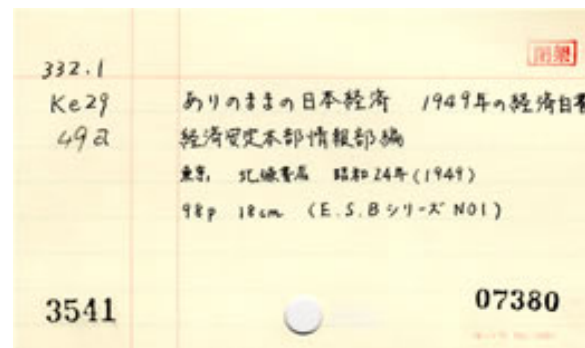 閉架
332.1
Ke29 ありのままの日本経済 1949年の経済白
49a 経済安定本部情報部編
東京 北條書店 昭和24年(1949)
98p 18cm (E.S.Bシリーズ NO1)
3541 07380